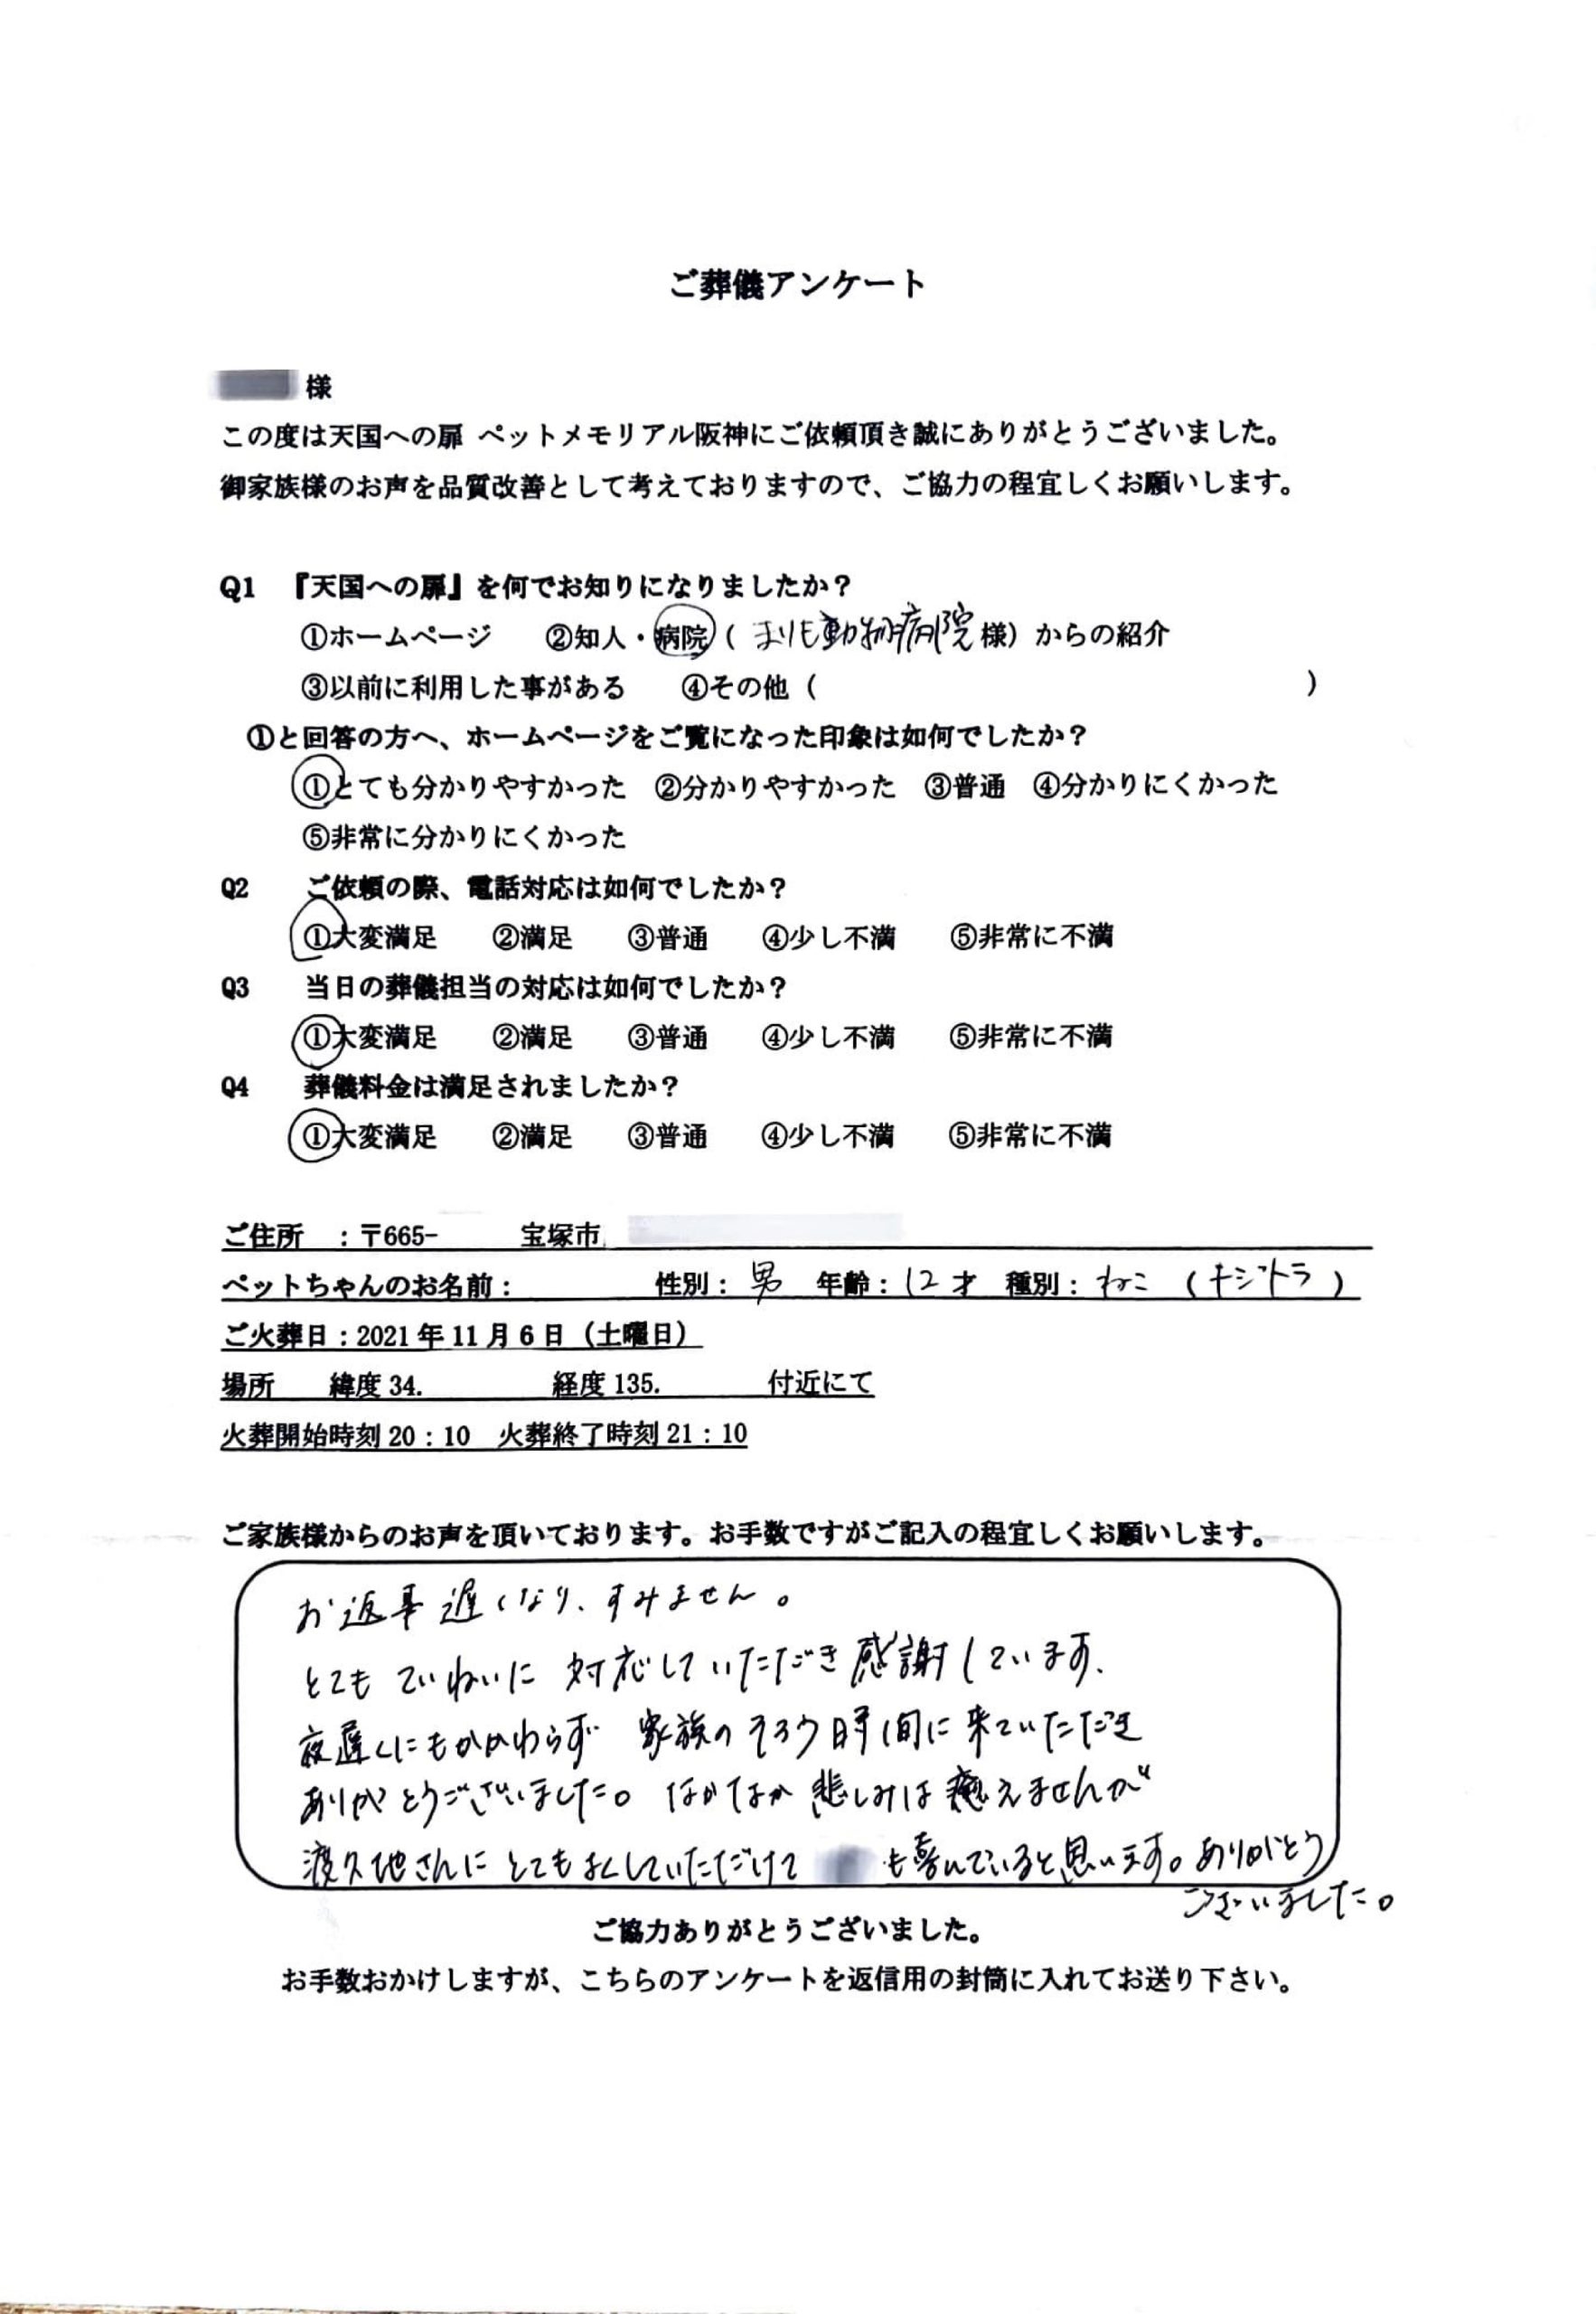 ご葬儀アンケート
様
この度は天国への扉 ペットメモリアル阪神にご依頼頂き誠にありがとうございました。
御家族様のお声を品質改善として考えておりますので、ご協力の程宜しくお願いします。
Q1 『天国への扉』を何でお知りになりましたか？
①ホームページ ②知人・病院（まりも動物病院様）からの紹介
③以前に利用した事がある ④その他（ ）
①と回答の方へ、ホームページをご覧になった印象は如何でしたか？
①とても分かりやすかった ②分かりやすかった ③普通 ④分かりにくかった
⑤非常に分かりにくかった
Q2 ご依頼の際、電話対応は如何でしたか？
①大変満足 ②満足 ③普通 ④少し不満 ⑤非常に不満
Q3 当日の葬儀担当の対応は如何でしたか？
①大変満足 ②満足 ③普通 ④少し不満 ⑤非常に不満
Q4 葬儀料金は満足されましたか？
①大変満足 ②満足 ③普通 ④少し不満 ⑤非常に不満
ご住所 ：〒665- 宝塚市
ペットちゃんのお名前： 性別：男 年齢：12才 種別：ねこ（キジトラ）
ご火葬日：2021年11月6日（土曜日）
場所 緯度34. 経度135. 付近にて
火葬開始時刻20：10 火葬終了時刻21：10
ご家族様からのお声を頂いております。お手数ですがご記入の程宜しくお願いします。
お返事遅くなり、すみません。
とてもていねいに対応していただき感謝しています。
夜遅くにもかかわらず 家族のそろう時間に来ていただき
ありがとうございました。なかなか悲しみは癒えませんが
渡久地さんにとてもよくしていただけて も喜んでいると思います。ありがとう
ございました。
ご協力ありがとうございました。
お手数おかけしますが、こちらのアンケートを返信用の封筒に入れてお送り下さい。